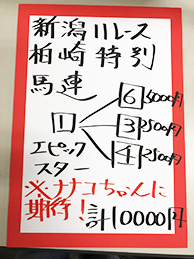 新潟11レース
柏崎特別
馬連
6 5000円
1 3 2500円
4 2500円
エピック
スター
※ナナコちゃんに
期待! 計10000円